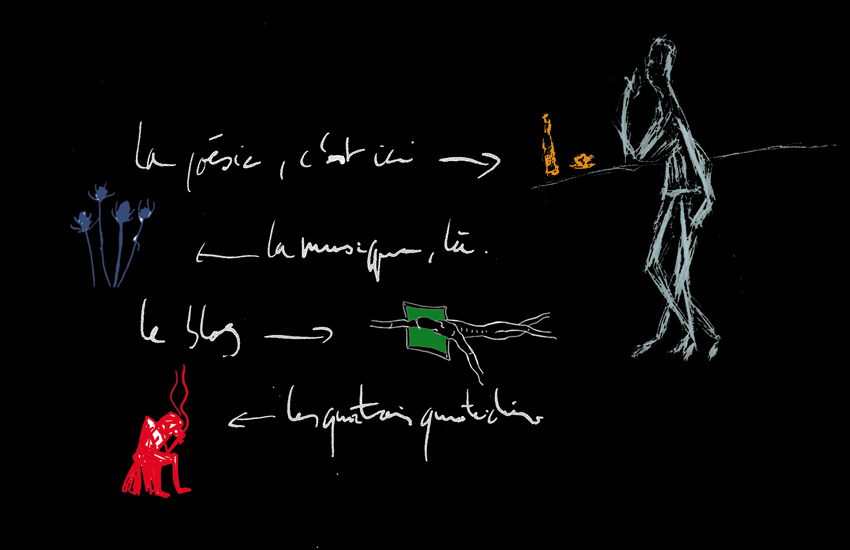 la poésie, c'est ici
la musique, là.
le blog
les quatrains quotidiens